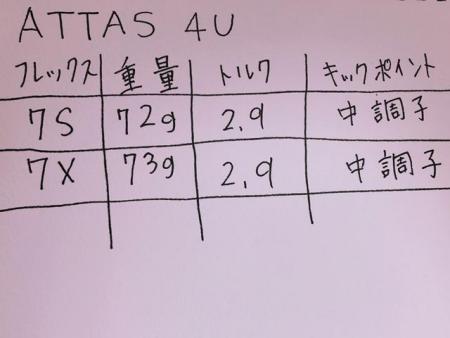 ATTAS 4U
フレックス 重量 トルク キックポイント
7S 72g 2.9 中調子
7X 73g 2.9 中調子